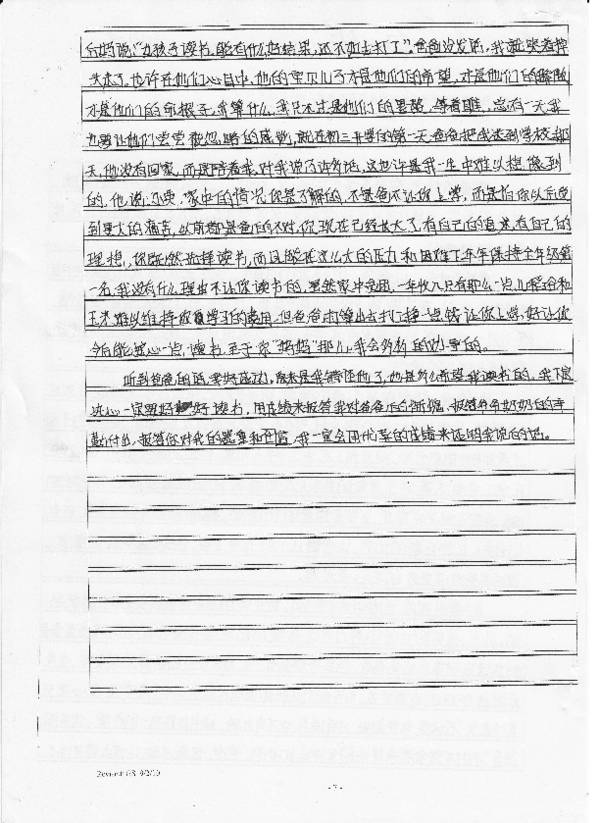 后妈说:“女孩子读书,能有什么好结果,还不如去打工”。爸爸没发话,我就哭着
头走了,也许在他们心目中,他的宝贝儿子才是他们的希望,才是他们的
才是他们的命根子,我算什么,我只不过是他们的累赘,等着瞧,总有一天我
也要让他们尝尝被忽略的感觉,就在初三开学的第一天爸爸把我送到学校那
天,他没有回家,而是陪着我,对我说了许多话,这也许是我一生中难以想像到
的,他说:家中的情况你是了解的,不是爸不让你上学,而是怕你以后受
到更大的痛苦,以前都是爸爸的不对,你现在已经长大了,有自己的追求,有自己的
理想,你既然选择读书,而且能在这么大的压力和困难下年年保持全年级第
一名,我没有什么理由不让你读书的,虽然家中贫困,一年收入只有那么一点儿
难以维持你学习的费用,但爸爸打算出去打工挣一点钱让你上学,好让你
今后能安心一点读书,至于你“妈妈”那儿,我会
听到爸爸的话,我好感动,原来是我错怪他了,他是多么希望我读书的,我下定
决心一定要好好读书,用成绩来报答我对爸爸的 报答爷爷奶奶的辛
勤付出,报答你对我的 和 我一定会用优异的成绩来证明我说的话。
- 7 -